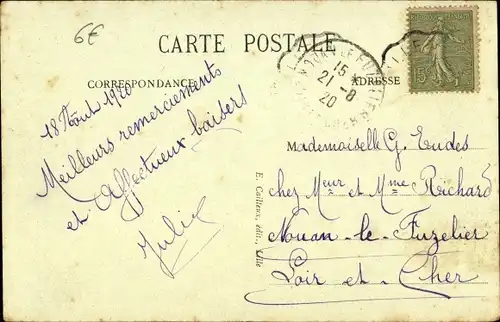 6€
CARTE POSTALE
CORRESPONDANCE
ADRESSE
15
21-8
20
18 Août 1920
Meilleurs remerciements
et affectueux baisers
Julia
E. Cailteux, édit., Lille
Mademoiselle G. Eudes
chez Meur et Mme Richard
Nouan-le-Fuzelier
Loir-et-Cher